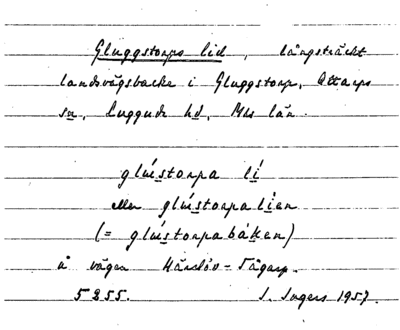 Gluggstorps lid, långsträckt
landsvägsbacke i Gluggstorp, Ottarps
sn, Luggude hd, Mhs län.
glústorpa lí
eller glústorpa lien
(= glústorpabákẹn)
å vägen Härslöv-Tågarp.
5255. I. Ingers 1957.